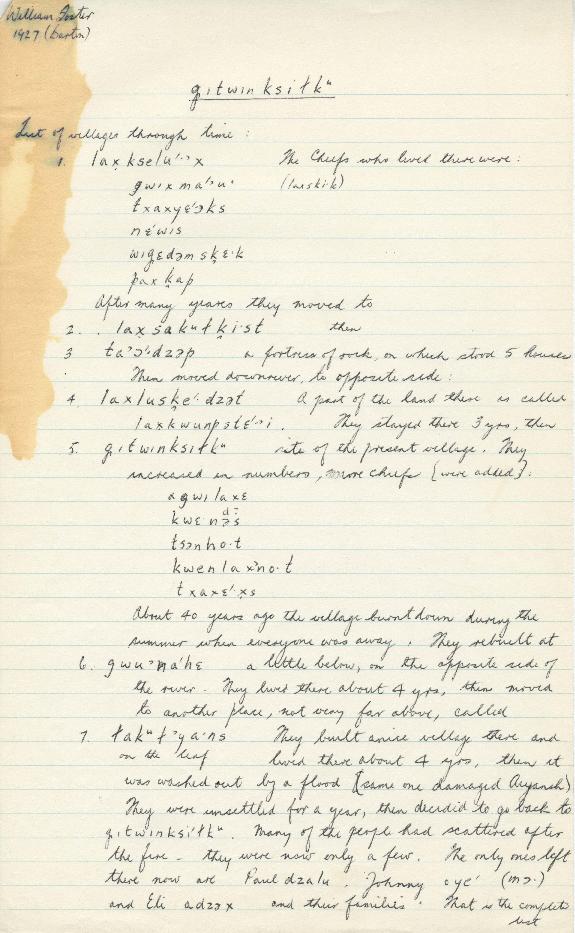 William Foster
1927 (Barton)
gitwinksiłkᵘ
List of villages through time:
1. laxkselu'ˀx The Chiefs who lived there were:
gwıxma'ˀu· (larskik)
txaxyɛ'ɔks
nɛ́wıs
wıgɛdəmsḳɛ·k
paxḳap
After many years they moved to
2. laxsakᵘłḳi·st then
3 ta'ɔ'·dzəp a fortress of rock, on which stood 5 houses
Then moved downriver, to opposite side:
4. laxlusḳe'·dzət A part of the land there is called
laxkwunpstɛ'ˀi. They stayed there 3 yrs, then
5. gıtwinksiłkᵘ site of the present village. They
increased in numbers, more chiefs [were added]:
agwılaxɛ
kwɛnəs
tsənho·t
kwenlaxˀno·t
txaxɛ'·xs
About 40 years ago the village burnt down during the
summer when everyone was away. They rebuilt at
6. gwuˀna'hɛ a little below, on the opposite side of
the river. They lived there about 4 yrs, then moved
to another place, not very far above, called
7. łakᵘłˀya·ns They built a nice village there and
on the leaf lived there about 4 yrs, then it
was washed out by a flood (same one damaged Aiyansh)
They were unsettled for a year, then decided to go back to
gıtwinksiłkᵘ. Many of the people had scattered after
the fire - they were now only a few. The only ones left
there now are Paul dzalu. Johnny oye' (mɔ·)
and Eli adzəx and their families. That is the complete
list